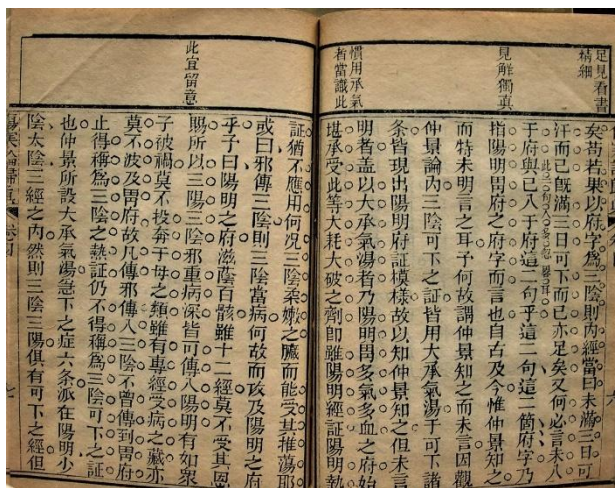 足見看書
精細
見解獨真
慣用承氣
者當識此
矣苦若果以府字爲三陰則內經當曰未滿三日可
汗而已既滿三日可下而已亦足矣又何必言未入
于府與已入于府這二句乎這二句這二箇府字乃
指陽明胃府之府字而言也自古及今惟仲景知之
而特未明言之耳予何故謂仲景知之而未言因觀
仲景論內三陰可下之証皆用大承氣湯于可下諸
条皆現出陽明府証模樣故以知仲景知之但未言
明者盖以大承氣湯者乃陽明胃多氣多血之府始
堪承受此等大耗大破之劑即雖陽明經証陽明熱
此宜留意
証猶不應用何况三陰柔嫩之臟而能受其推蕩耶
或曰邪傳三陰則三陰當病何故而攻及陽明之府
乎予曰陽明之府滋蔭百骸雖十二經莫不受其恩
賜所以三陽三陰邪重病深皆可傳入陽明有如衆
子被禍莫不投奔于母之類雖有專經受病之臟亦
莫不波及胃府故凡傳邪傳入三陰不曾傳到胃府
止得稱爲三陰之熱証仍不得稱爲三陰可下之証
也仲景所設大承氣湯急下之症六条派在陽明少
陰太陰三經之內然則三陰三陽俱有可下之經但